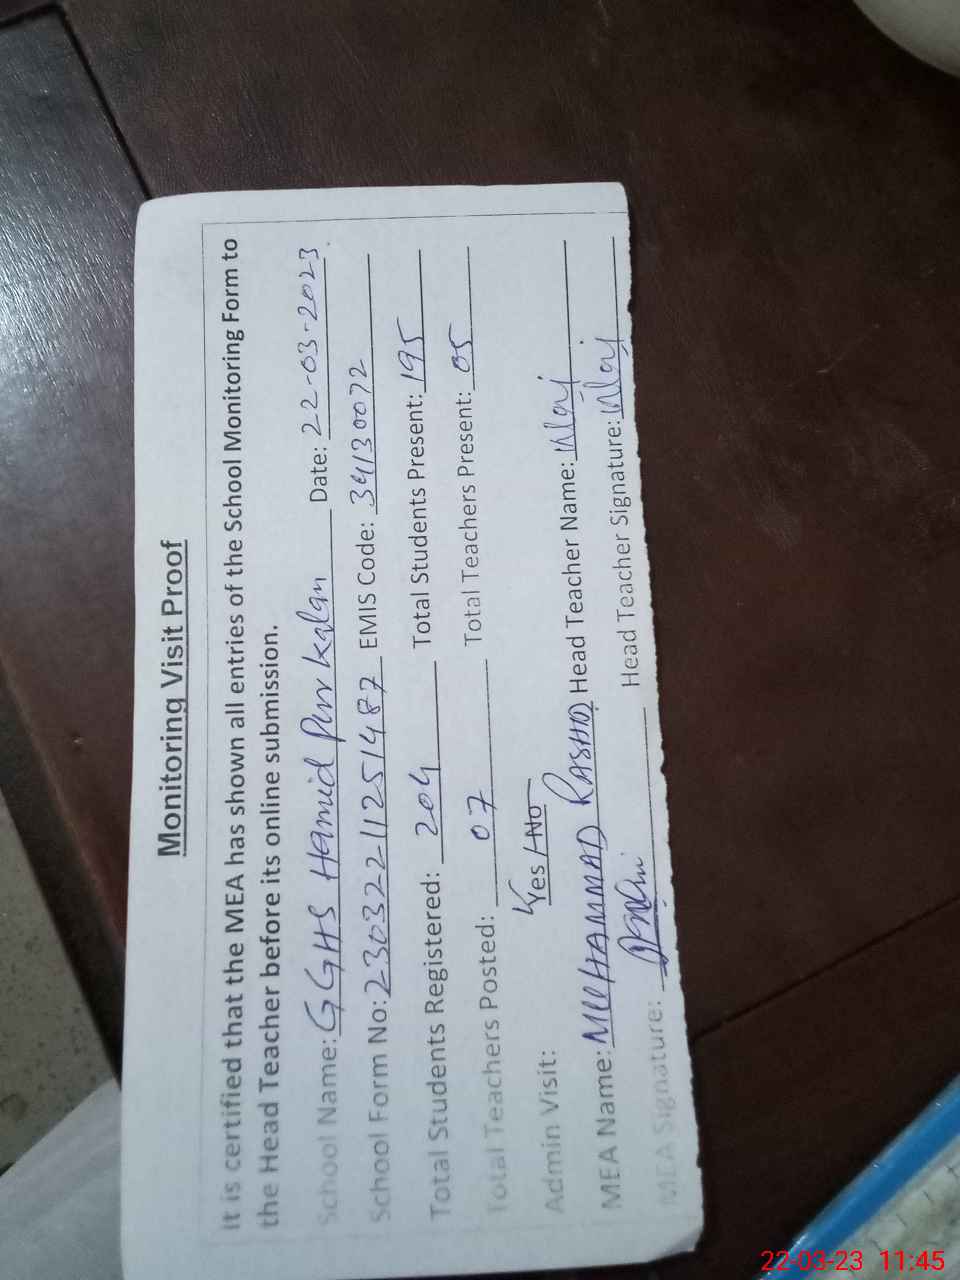 Monitoring Visit Proof
It is certified that the MEA has shown all entries of the School Monitoring Form to
the Head Teacher before its online submission.
School Name: GGHS Hamid Pur Kalan Date: 22-03-2023
School Form No: 23032211251487 EMIS Code: 34130072
Total Students Registered: 204 Total Students Present: 195
Total Teachers Posted: 07 Total Teachers Present: 05
Admin Visit: Yes / No
MEA Name: MUHAMMAD RASHID Head Teacher Name:
MEA Signature: Head Teacher Signature:
22-03-23 11:45